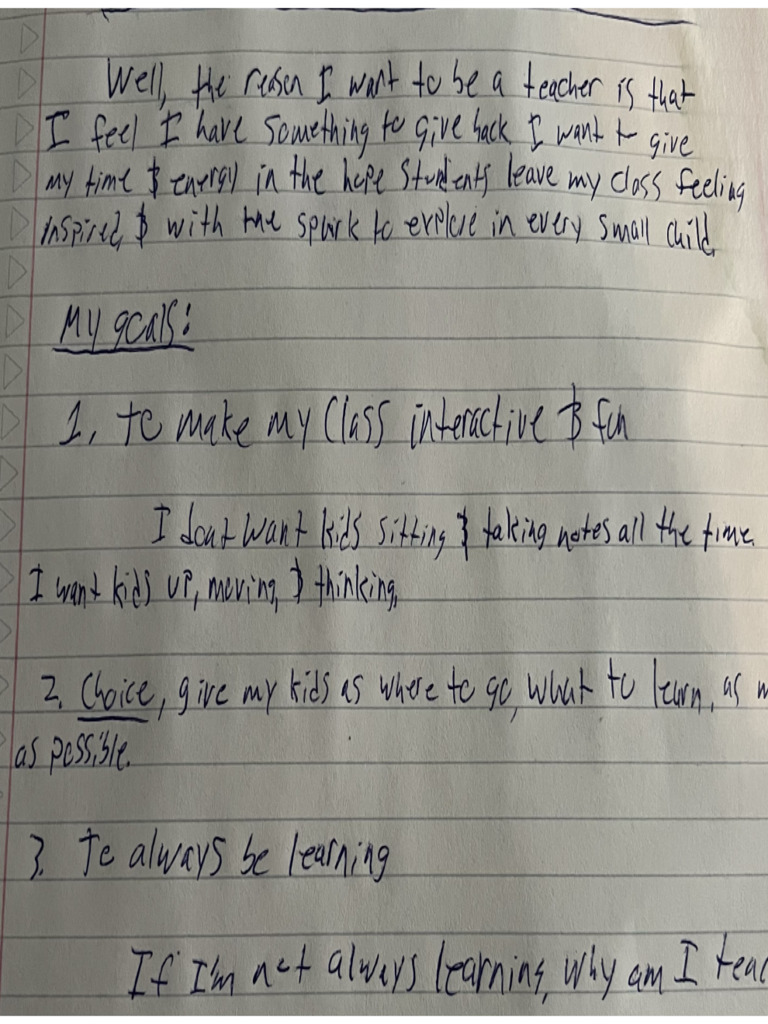 Well, the reason I want to be a teacher is that
I feel I have something to give back I want to give
my time & energy in the hope students leave my class feeling
inspired, & with the spark to explore in every small child.
My goals:
1, to make my class interactive & fun
I dont want kids sitting & taking notes all the time.
I want kids up, moving, & thinking,
2. Choice, give my kids as where to go, what to learn, as
as possible.
3. To always be learning
If I'm not always learning, why am I